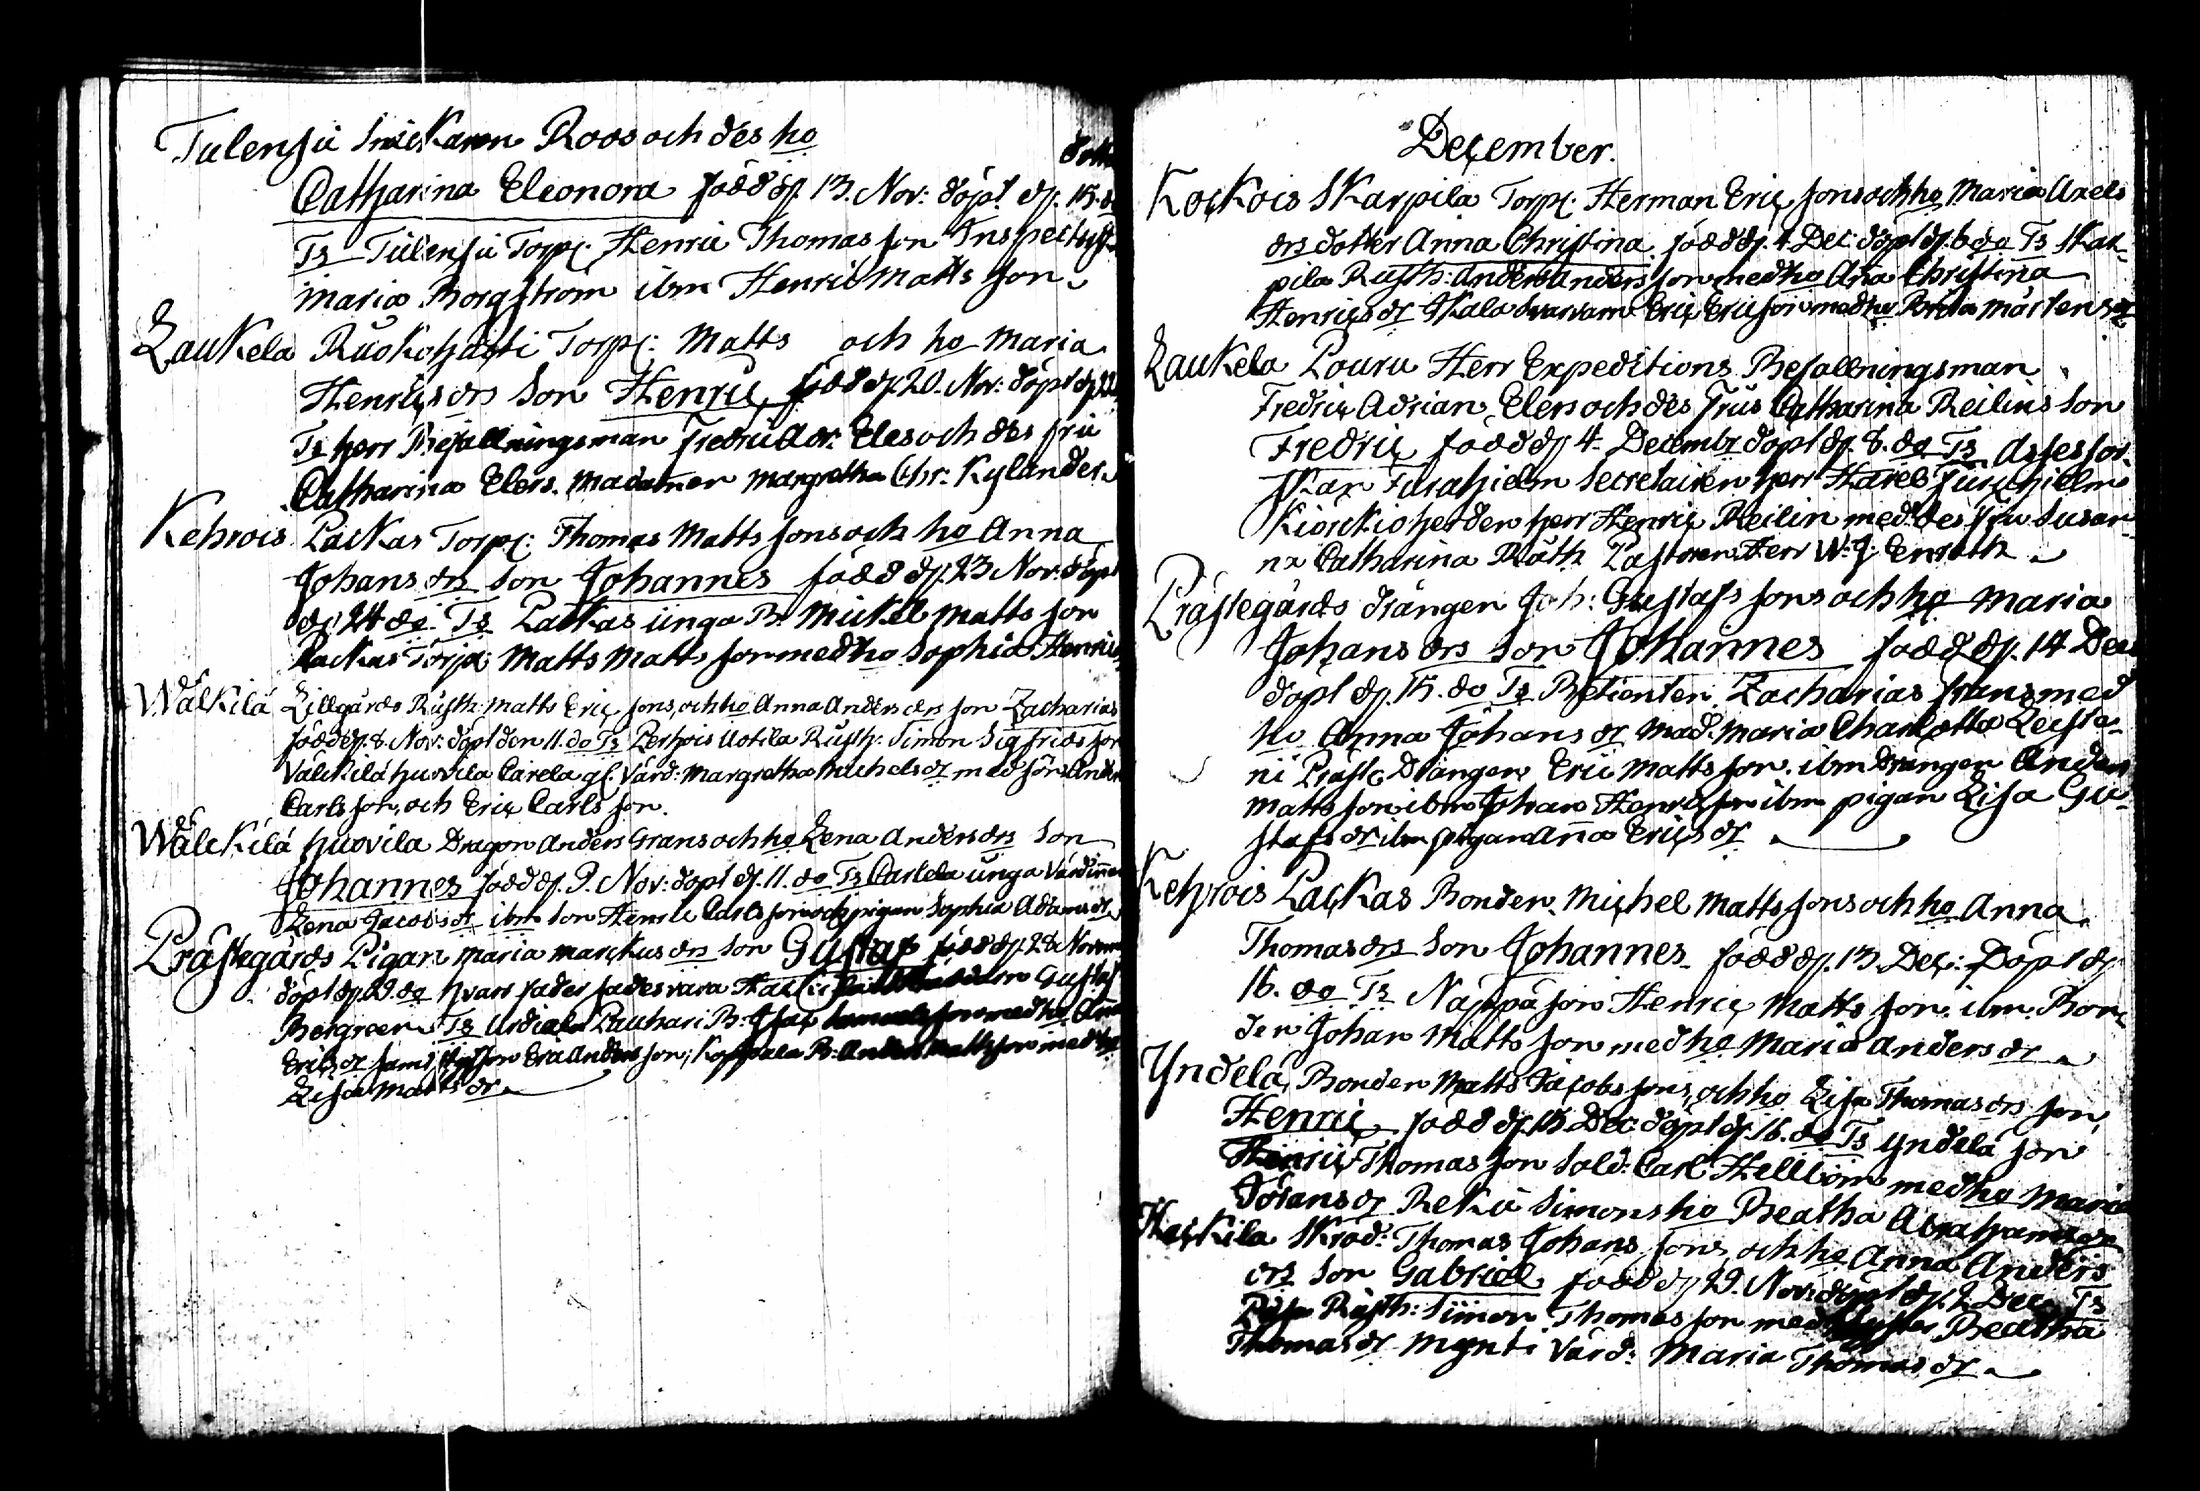 Tulensu Snickaren Roos och des ho dott
Catharina Eleonora född d. 13. Nov: döpt d. 15. d
Ts Tulensu Torp. Henric Thomas son Inspect
Maria Borgstrom ibm Henric Matts son
Laukela Ruokohaiti Torp: Matts och ho Maria
Henrics drs Son Henric född d. 20. Nov: döpt d. 22
Ts herr Befallningsman Fredric Adr. Eles och des fru
Catharina Elers. Madamen Margretha Chr. Kylander
Kehrois Lackas Torp: Thomas Matts sons och ho Anna
Johans drs son Johannes född d. 23 Nov. döpt
d. 24 do Ts Lackas unga B. Mickel Matts son
Lackas Torp: Matts Matts son med ho Sophia Henrics
Wälkilä Lillgårds Rusth: Matts Eric sons, och ho Anna Anders drs son Zacharias
född d. 8 Nov: döpt den 11. do Ts Perhois Uotila Rusth: Simon Sigfrids son
Välkilä Huovila Carela gl. Värd: Margretha Michels dr med son Anders
Carls son, och Eric Carls son.
Wälckilä Huovila Dragon Anders Grans och ho Lena Anders drs Son
Johannes född d. 9. Nov: döpt d. 11. do Ts Carlela unga Värdinnan
Lena Jacobs dr ibm son Henric Carls son och pigan Sophia Adams dr
Prästegårds Pigan Maria Marckus drs son Gustaf född d. 28 Novem
döpt d. 29. do hvars fader sades vara Gustaf
Bergreen Ts Urdiala Lauhari B: med ho Anna
Erics dr samt Eric Anders son, Koppala B: Anders Matts son med ho
Lisa Matts dr
December.
Kockois Skarpila Torp: Herman Eric sons och ho Maria Axels
drs dotter Anna Christina född d. 4. Dec: döpt d. 6 do Ts Skar-
pila Rusth: Anders Anders son med ho Anna Christina
Henrics dr Skala Svarvarn Eric Eric son med ho Mårtens dr
Laukela Pouru Herr Expeditions Befallningsman
Fredric Adrian Elers och des Frus Catharina Reilins Son
Fredric född d. 4 Decembr döpt d. 8. do Ts Assessor
Skan Furuhjelm Secretairen herr Karel Furuhjelm
Kiorckioherden herr Henric Reilin med des fru Susan-
na Catharina Räth Pastoren Herr W: J: Enroth
Prästegårds drängen Joh: Gustafs sons och ho Maria
Johans drs Son Johannes född d. 14 Dec
döpt d. 15. do Ts Betienten Zacharias Frans med
ho Anna Johans dr Mad. Maria Charlotta Leiste-
nii Präst: Drängen Eric Matts son. ibm drängen Anders
Matts son ibm Johan Henric son ibm pigan Lisa Gu-
stafs dr ibm pigan Anna Erics dr
Kehrois Lackas Bonden Michel Matts sons och ho Anna
Thomas drs Son Johannes född d. 13 Dec: Döpt d.
16. do Ts Näppä son Henric Matts son. ibm. Bon-
den Johan Matts son med ho Maria Anders dr
Yndelä Bonden Matts Jacobs sons, och ho Lisa Thomas drs son
Henric född d. 15 Dec: döpt d. 16. do Ts Yndelä son
Henric Thomas son Sold: Carl Hellbom med ho Maria
Jörans dr Rekii Simons ho Beatha Abrahams dr
Heickila Skräd: Thomas Johans sons och ho Anna Anders
drs Son Gabriel född d. 29. Nov: döpt d. 2 Dec: Ts
Rusth: Simon Thomas son med Beatha
Thomas dr Mynti Värd: Maria Thomas dr